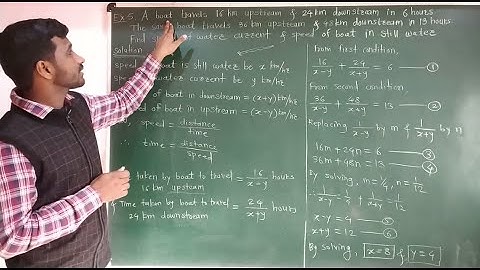 Ex-5. A boat travels 16 km upstream & 24 km downstream in 6 hours.
The same boat travels 36 km upstream & 48 km downstream in 13 hours.
Find of water current & speed of boat in still water
Solution
speed boat is still water be x km/hr
speed water current be y km/hr
of boat in downstream = (x+y) km/hr
of boat in upstream = (x-y) km/hr
speed = distance/time
∴ time = distance/speed
taken by boat to travel = 16/x-y hours
16 km upstream
& Time taken by boat to travel = 24/x+y hours
24 km downstream
From first condition,
16/x-y + 24/x+y = 6 ①
From second condition,
36/x-y + 48/x+y = 13 ②
Replacing 1/x-y by m & 1/x+y by n
16m + 24n = 6 ③
36m + 48n = 13 ④
By solving, m = 1/4, n = 1/12
∴ 1/x-y = 1/4 & 1/x+y = 1/12
x-y = 4 ⑤
x+y = 12 ⑥
By solving, x=8 & y=4